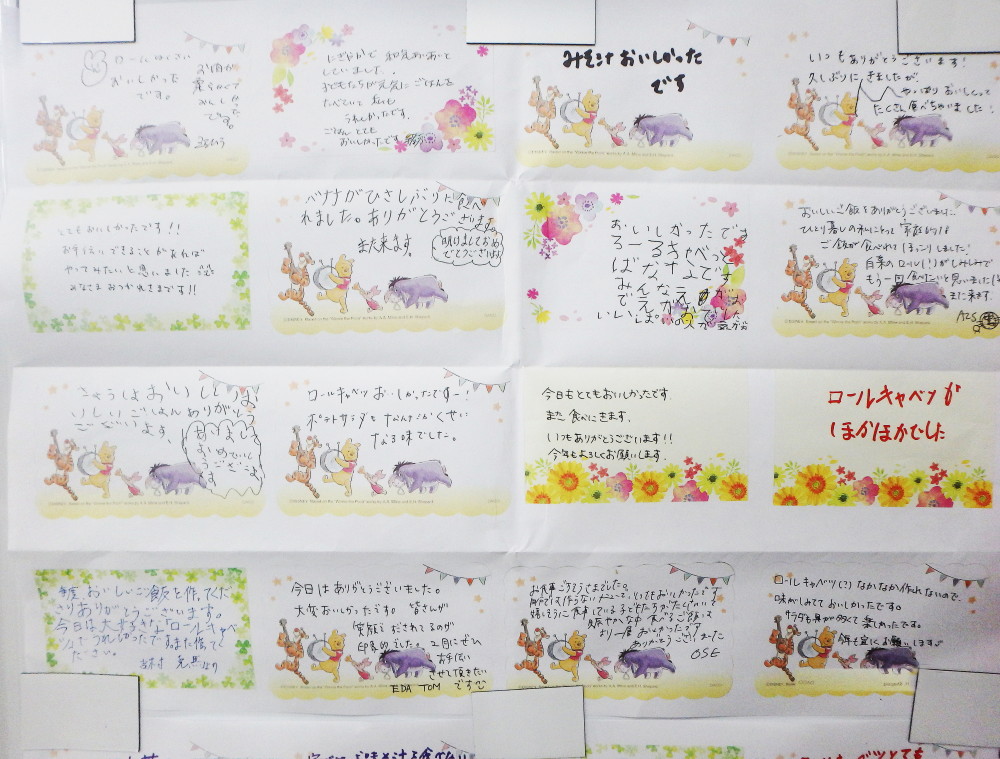 ロールはくさい
おいしかった
です。
お肉が
柔らかくて
おいしかった
です。
にぎやかで 和気あいあいと
していました。
子どもたちが元気に ごはんを
たべていて 私も
うれしかったです。
ごはん とても
おいしかったです
みそ汁 おいしかった
です
いつもありがとうございます!
久しぶりにきましたが、
やっぱり おいしくって
たくさん食べちゃいました!
とてもおいしかったです!!
お手伝いできることがあれば
やってみたいと思いました
みなさま おつかれさまです!!
バナナがひさしぶりに食べ
れました。ありがとうございます。
また来ます。
明けましておめ
でとうございます
おいしかったです
ろーるきゃべつ
ばななです
みんなえがお
でえがおが
いいっぱい
おいしいご飯をありがとうございました
ひとり暮しの私にとって 家族のような
ご飯が食べれて ほっこりしました!
白菜のロール(!)がしみしみで
もう一回食べたいと思いました
また来ます。
きょうはおいしいお
いしいごはんありがとう
ございます。
あけまして
おめでとう
ございます
ロールキャベツ おいしかったですー!
ポテトサラダも なんかこんくせに
なる味でした。
今日もとてもおいしかったです
また 食べにきます。
いつもありがとうございます!!
今年もよろしくお願いします。
ロールキャベツが
ほかほかでした
毎度 おいしいご飯を作ってくだ
さりありがとうございます。
今日は大好きな「ロールキャベ
ツ」でうれしかったです。また作って
ください。
今日はありがとうございました。
大変おいしかったです。皆さんが
笑顔でおだされるのが
印象的でした。2月にぜひ
お手伝い
させて頂きたい
です
EDA TOM
お食事ごちそうさまでした。
とてもおいしかったです
嬉しそうに食事している子どもたちがたくさんいて
賑やかな中 食べるご飯って
より一層 おいしかったです
ありがとうございました
OSE
ロールキャベツ(?)なかなか作れないので、
味がしみてて おいしかったです。
サラダも具が多くて 楽しかったです。
今年も宜しくお願いします